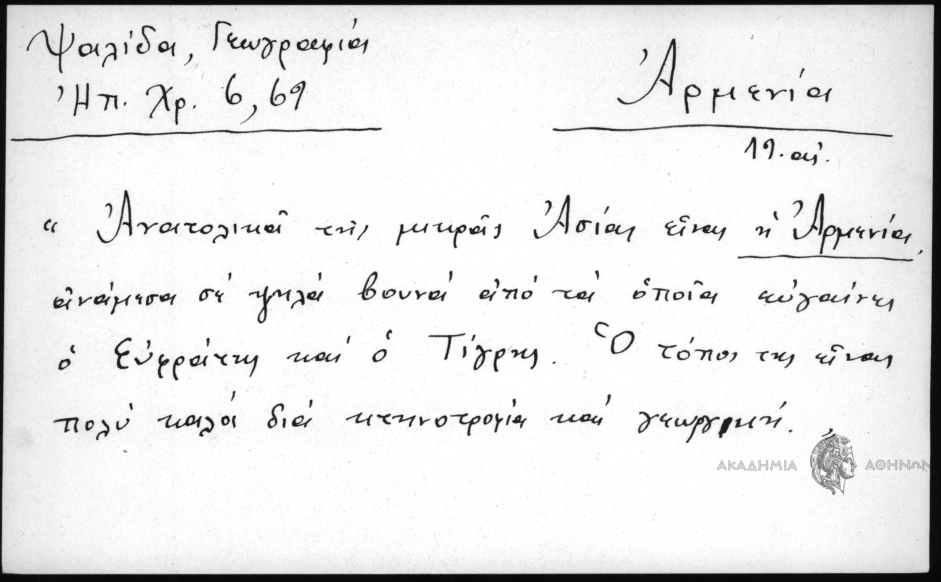 Ψαλίδα, Γεωγραφία
Ἠπ. Χρ. 6, 69
Ἀρμενία
19. αἰ.
« Ἀνατολικὰ τῆς μικρᾶς Ἀσίας εἶναι ἡ Ἀρμενία,
ἀνάμεσα σὲ ψηλὰ βουνὰ ἀπὸ τὰ ὁποῖα εὐγαίνει
ὁ Εὐφράτης καὶ ὁ Τίγρης. Ὁ τόπος της εἶναι
πολὺ καλὰ διὰ κτηνοτροφία καὶ γεωργική. »
ΑΚΑΔΗΜΙΑ ΑΘΗΝΩΝ